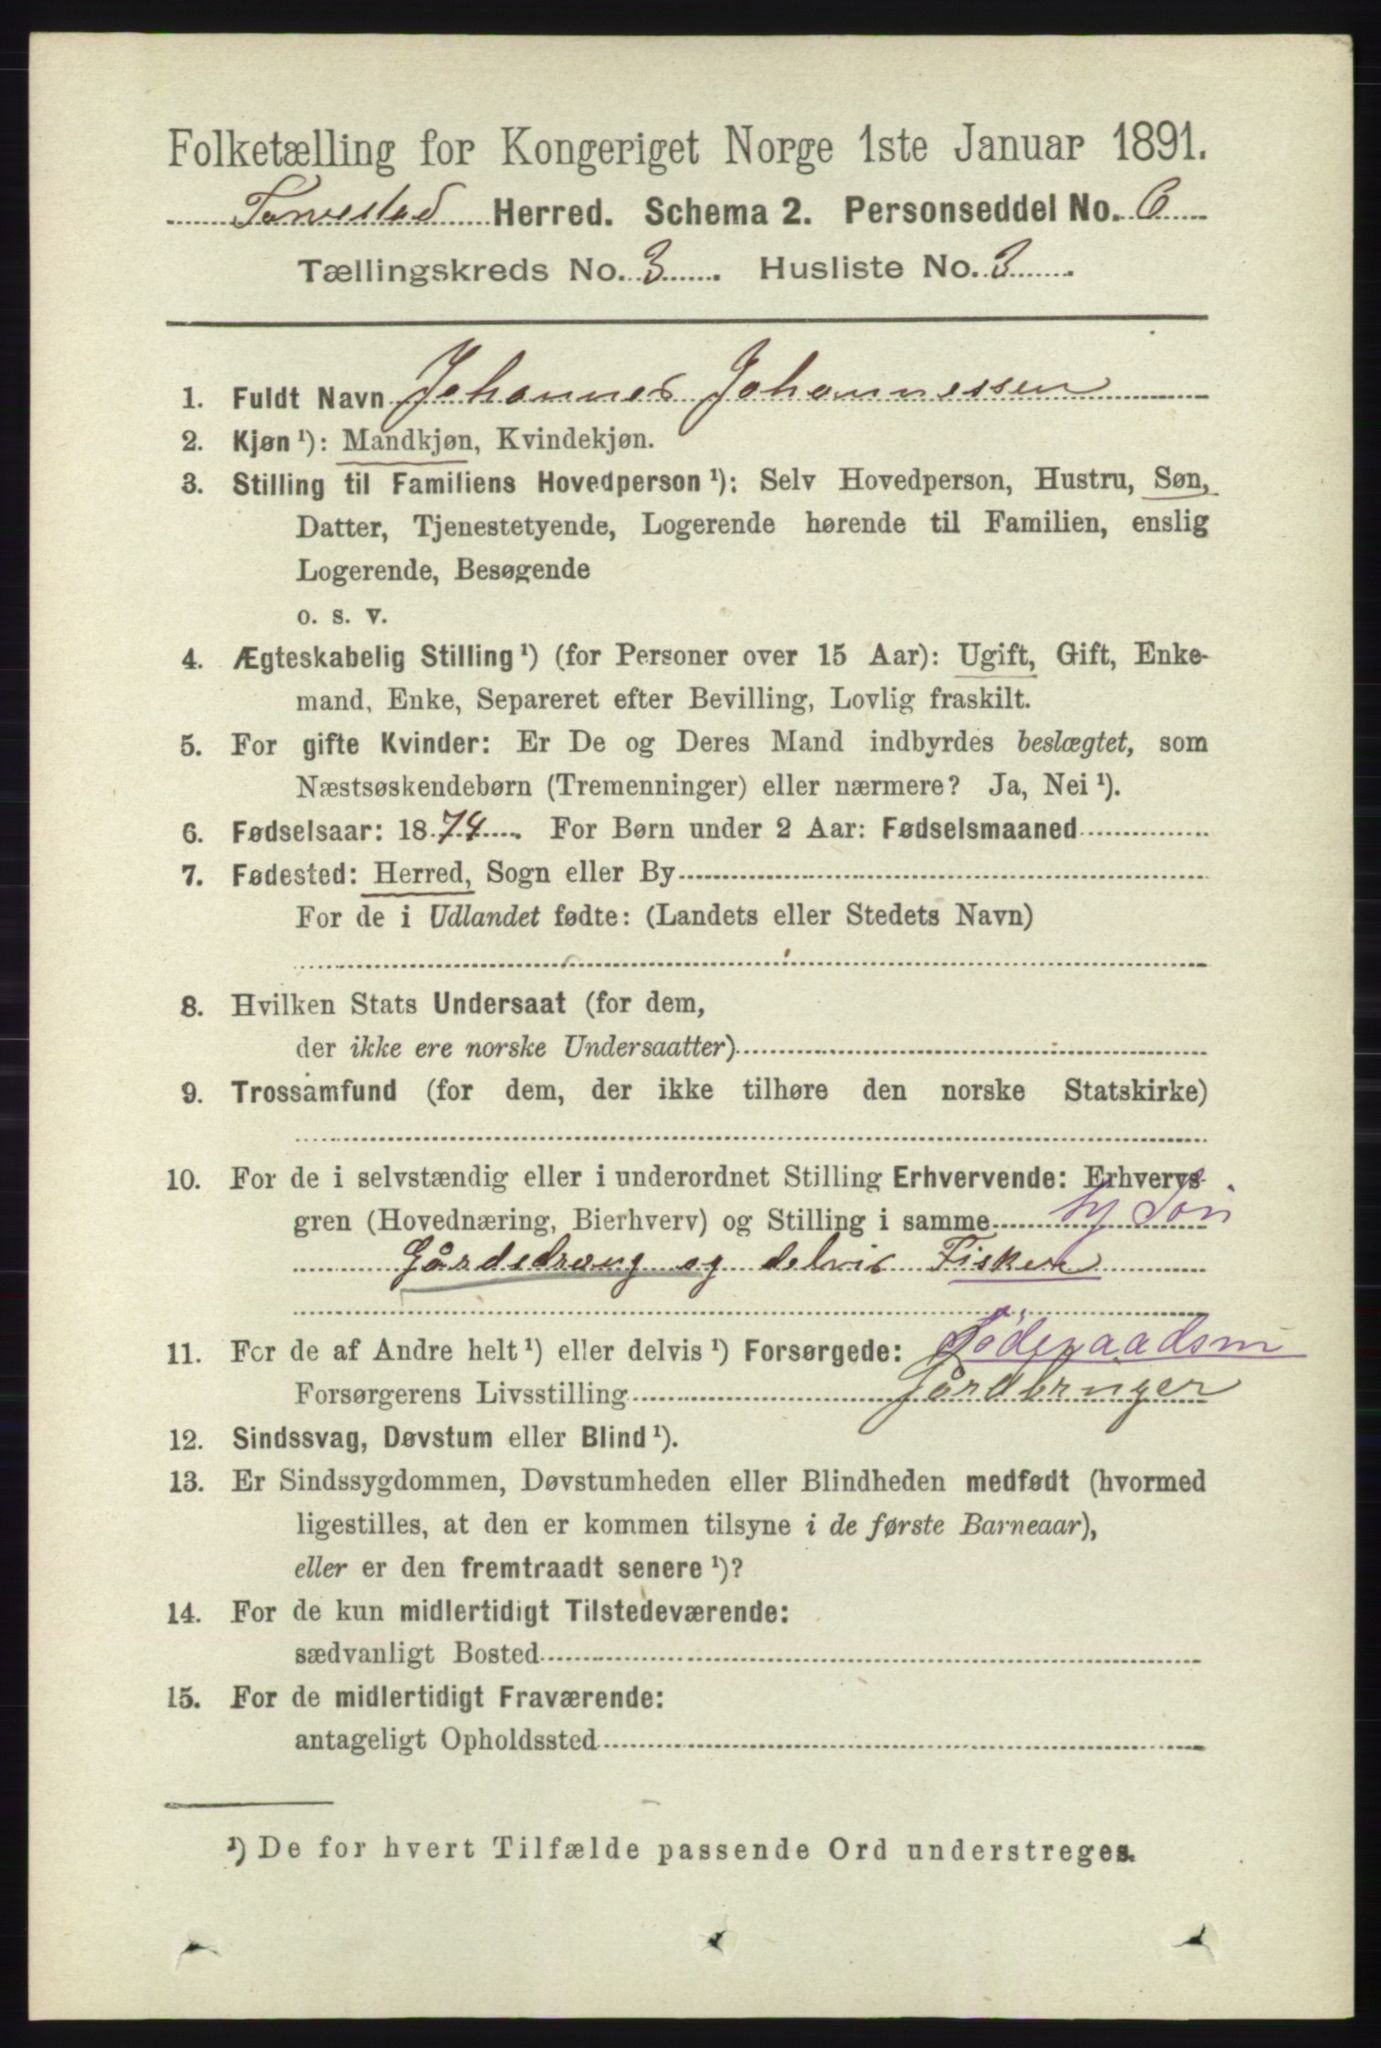 Folketælling for Kongeriget Norge 1ste Januar 1891.
Torvestad Herred. Schema 2. Personseddel No. 6
Tællingskreds No. 3. Husliste No. 3
1. Fuldt Navn Johannes Johannessen
2. Kjøn ¹): Mandkjøn, Kvindekjøn.
3. Stilling til Familiens Hovedperson ¹): Selv Hovedperson, Hustru, Søn,
Datter, Tjenestetyende, Logerende hørende til Familien, enslig
Logerende, Besøgende
o. s. v.
4. Ægteskabelig Stilling ¹) (for Personer over 15 Aar): Ugift, Gift, Enke-
mand, Enke, Separeret efter Bevilling, Lovlig fraskilt.
5. For gifte Kvinder: Er De og Deres Mand indbyrdes beslægtet, som
Næstsøskendebørn (Tremenninger) eller nærmere? Ja, Nei ¹).
6. Fødselsaar: 1874. For Børn under 2 Aar: Fødselsmaaned
7. Fødested: Herred, Sogn eller By
For de i Udlandet fødte: (Landets eller Stedets Navn)
8. Hvilken Stats Undersaat (for dem,
der ikke ere norske Undersaatter)
9. Trossamfund (for dem, der ikke tilhøre den norske Statskirke)
10. For de i selvstændig eller i underordnet Stilling Erhvervende: Erhvervs-
gren (Hovednæring, Bierhverv) og Stilling i samme
Gårdsdreng og delvis Fisker
11. For de af Andre helt ¹) eller delvis ¹) Forsørgede:
Forsørgerens Livsstilling Gårdbruger
12. Sindssvag, Døvstum eller Blind ¹).
13. Er Sindssygdommen, Døvstumheden eller Blindheden medfødt (hvormed
ligestilles, at den er kommen tilsyne i de første Barneaar),
eller er den fremtraadt senere ¹)?
14. For de kun midlertidigt Tilstedeværende:
sædvanligt Bosted
15. For de midlertidigt Fraværende:
antageligt Opholdssted
¹) De for hvert Tilfælde passende Ord understreges.